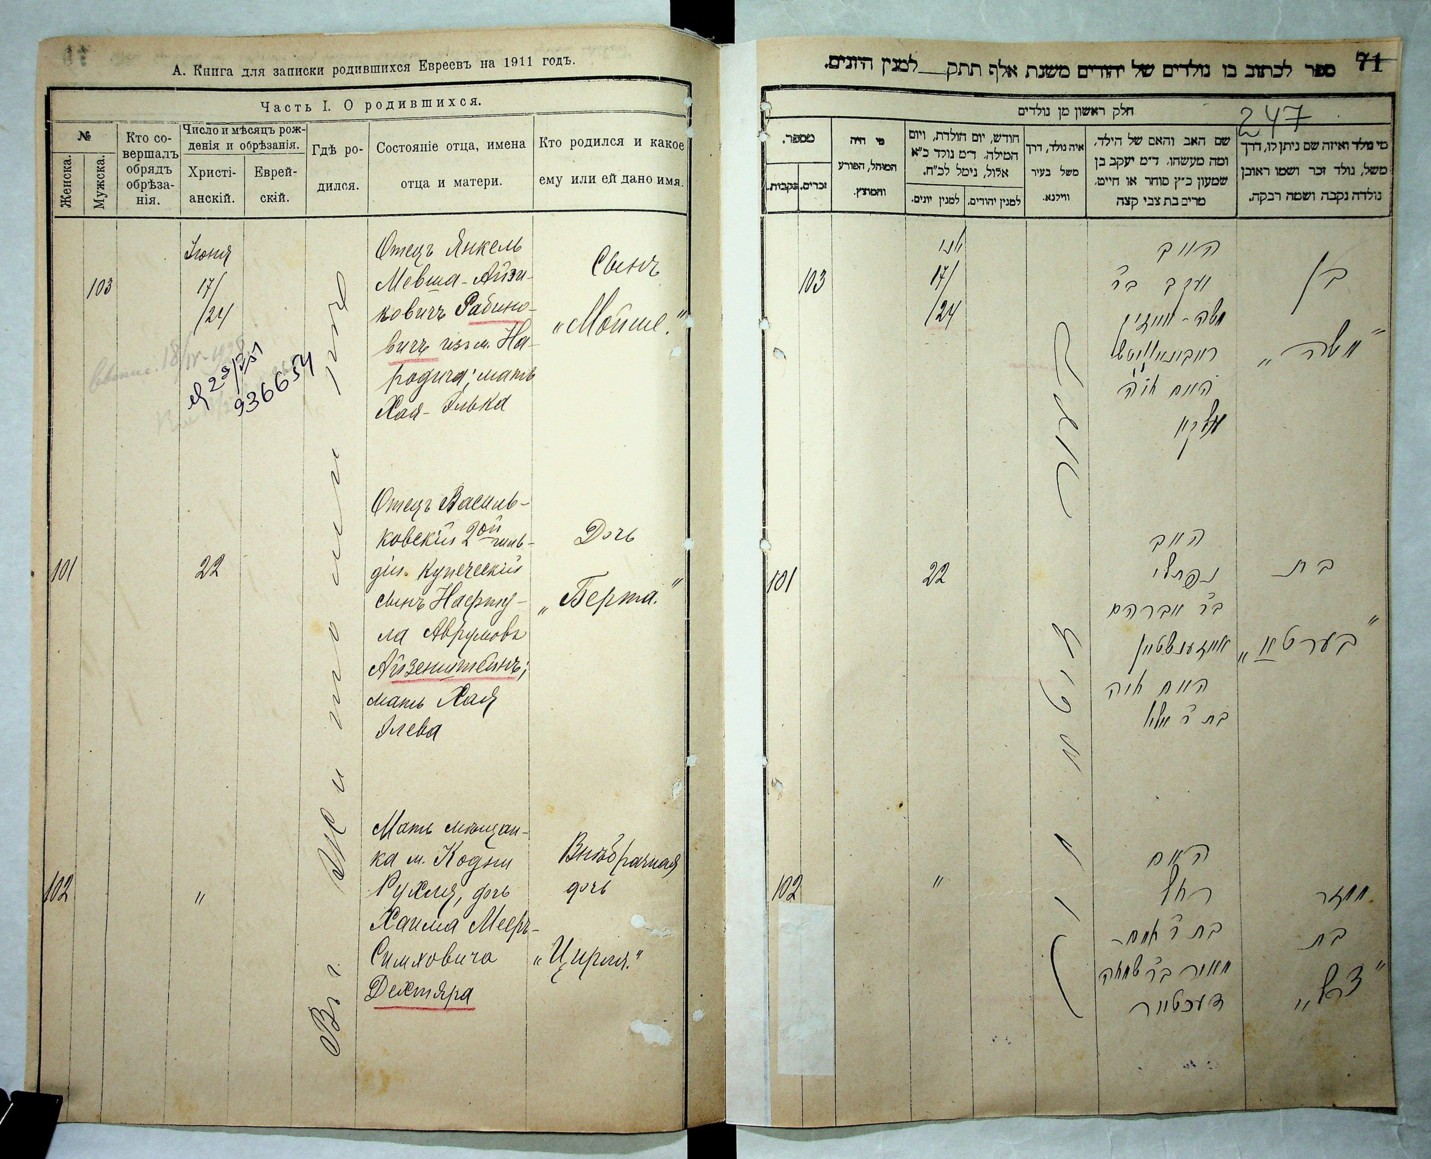 А. Книга для записки родившихся Евреевъ на 1911 годъ.
Часть I. О родившихся.
№
Женска.
Мужска.
Кто со-
вершалъ
обрядъ
обрѣза-
нія.
Число и мѣсяцъ рож-
денія и обрѣзанія.
Христі-
анскій.
Еврей-
скій.
Гдѣ ро-
дился.
Состояніе отца, имена
отца и матери.
Кто родился и какое
ему или ей дано имя.
103
Іюня
17/
/24
936654
Отецъ Янкель
Мевша-Айзи-
ковичъ Рабино-
вичъ изъ м. На-
родича; мать
Хая-Элька
Сынъ
„Мойше."
101
22
Отецъ Василь-
ковскій 2ой гиль-
діи купеческій
сынъ Нафту-
ла Аврумовъ
Айзенштейнъ;
мать Хая
Элева
Дочь
„Берта."
102
"
Мать мѣщан-
ка м. Кодни
Рухля, дочь
Хаима Мееръ-
Симховича
Дехтяра
Внѣбрачная
дочь
„Цирля."
Въ г. Житомирѣ
71
ספר לכתוב בו נולדים של יהודים משנת אלף תתק__ למנין היונים.
חלק ראשון מן נולדים
247
מספר.
נקבות.
זכרים.
מי היה
המוהל, הפורע
והמוצץ.
חודש, יום הולדת, ויום
המילה. ד״מ נולד כ״א
אלול, נימל לכ״ח.
למנין יונים.
למנין יהודים.
איה נולד, דרך
משל בעיר
ווילנא.
שם האב והאם של הילד,
ומה מעשהו. ד״מ יעקב בן
שמעון כ״ץ סוחר או חייט.
מרים בת צבי קצה
מי נולד ואיזה שם ניתן לו, דרך
משל, נולד זכר ושמו ראובן
נולדה נקבה ושמה רבקה.
103
17/
/24
האב
יעקב בר
משה-אייזיק
ראבינאוויטש
האם חיה
עלקא
בן
„משה"
101
22
האב
נפתלי
בר אברהם
אייזענשטיין
האם חיה
בת
„בערטא"
102
"
האם
רחל
בת ר חיים-
מאיר בר שמחה
דעכטיאר
ממזר
בת
„צרל"